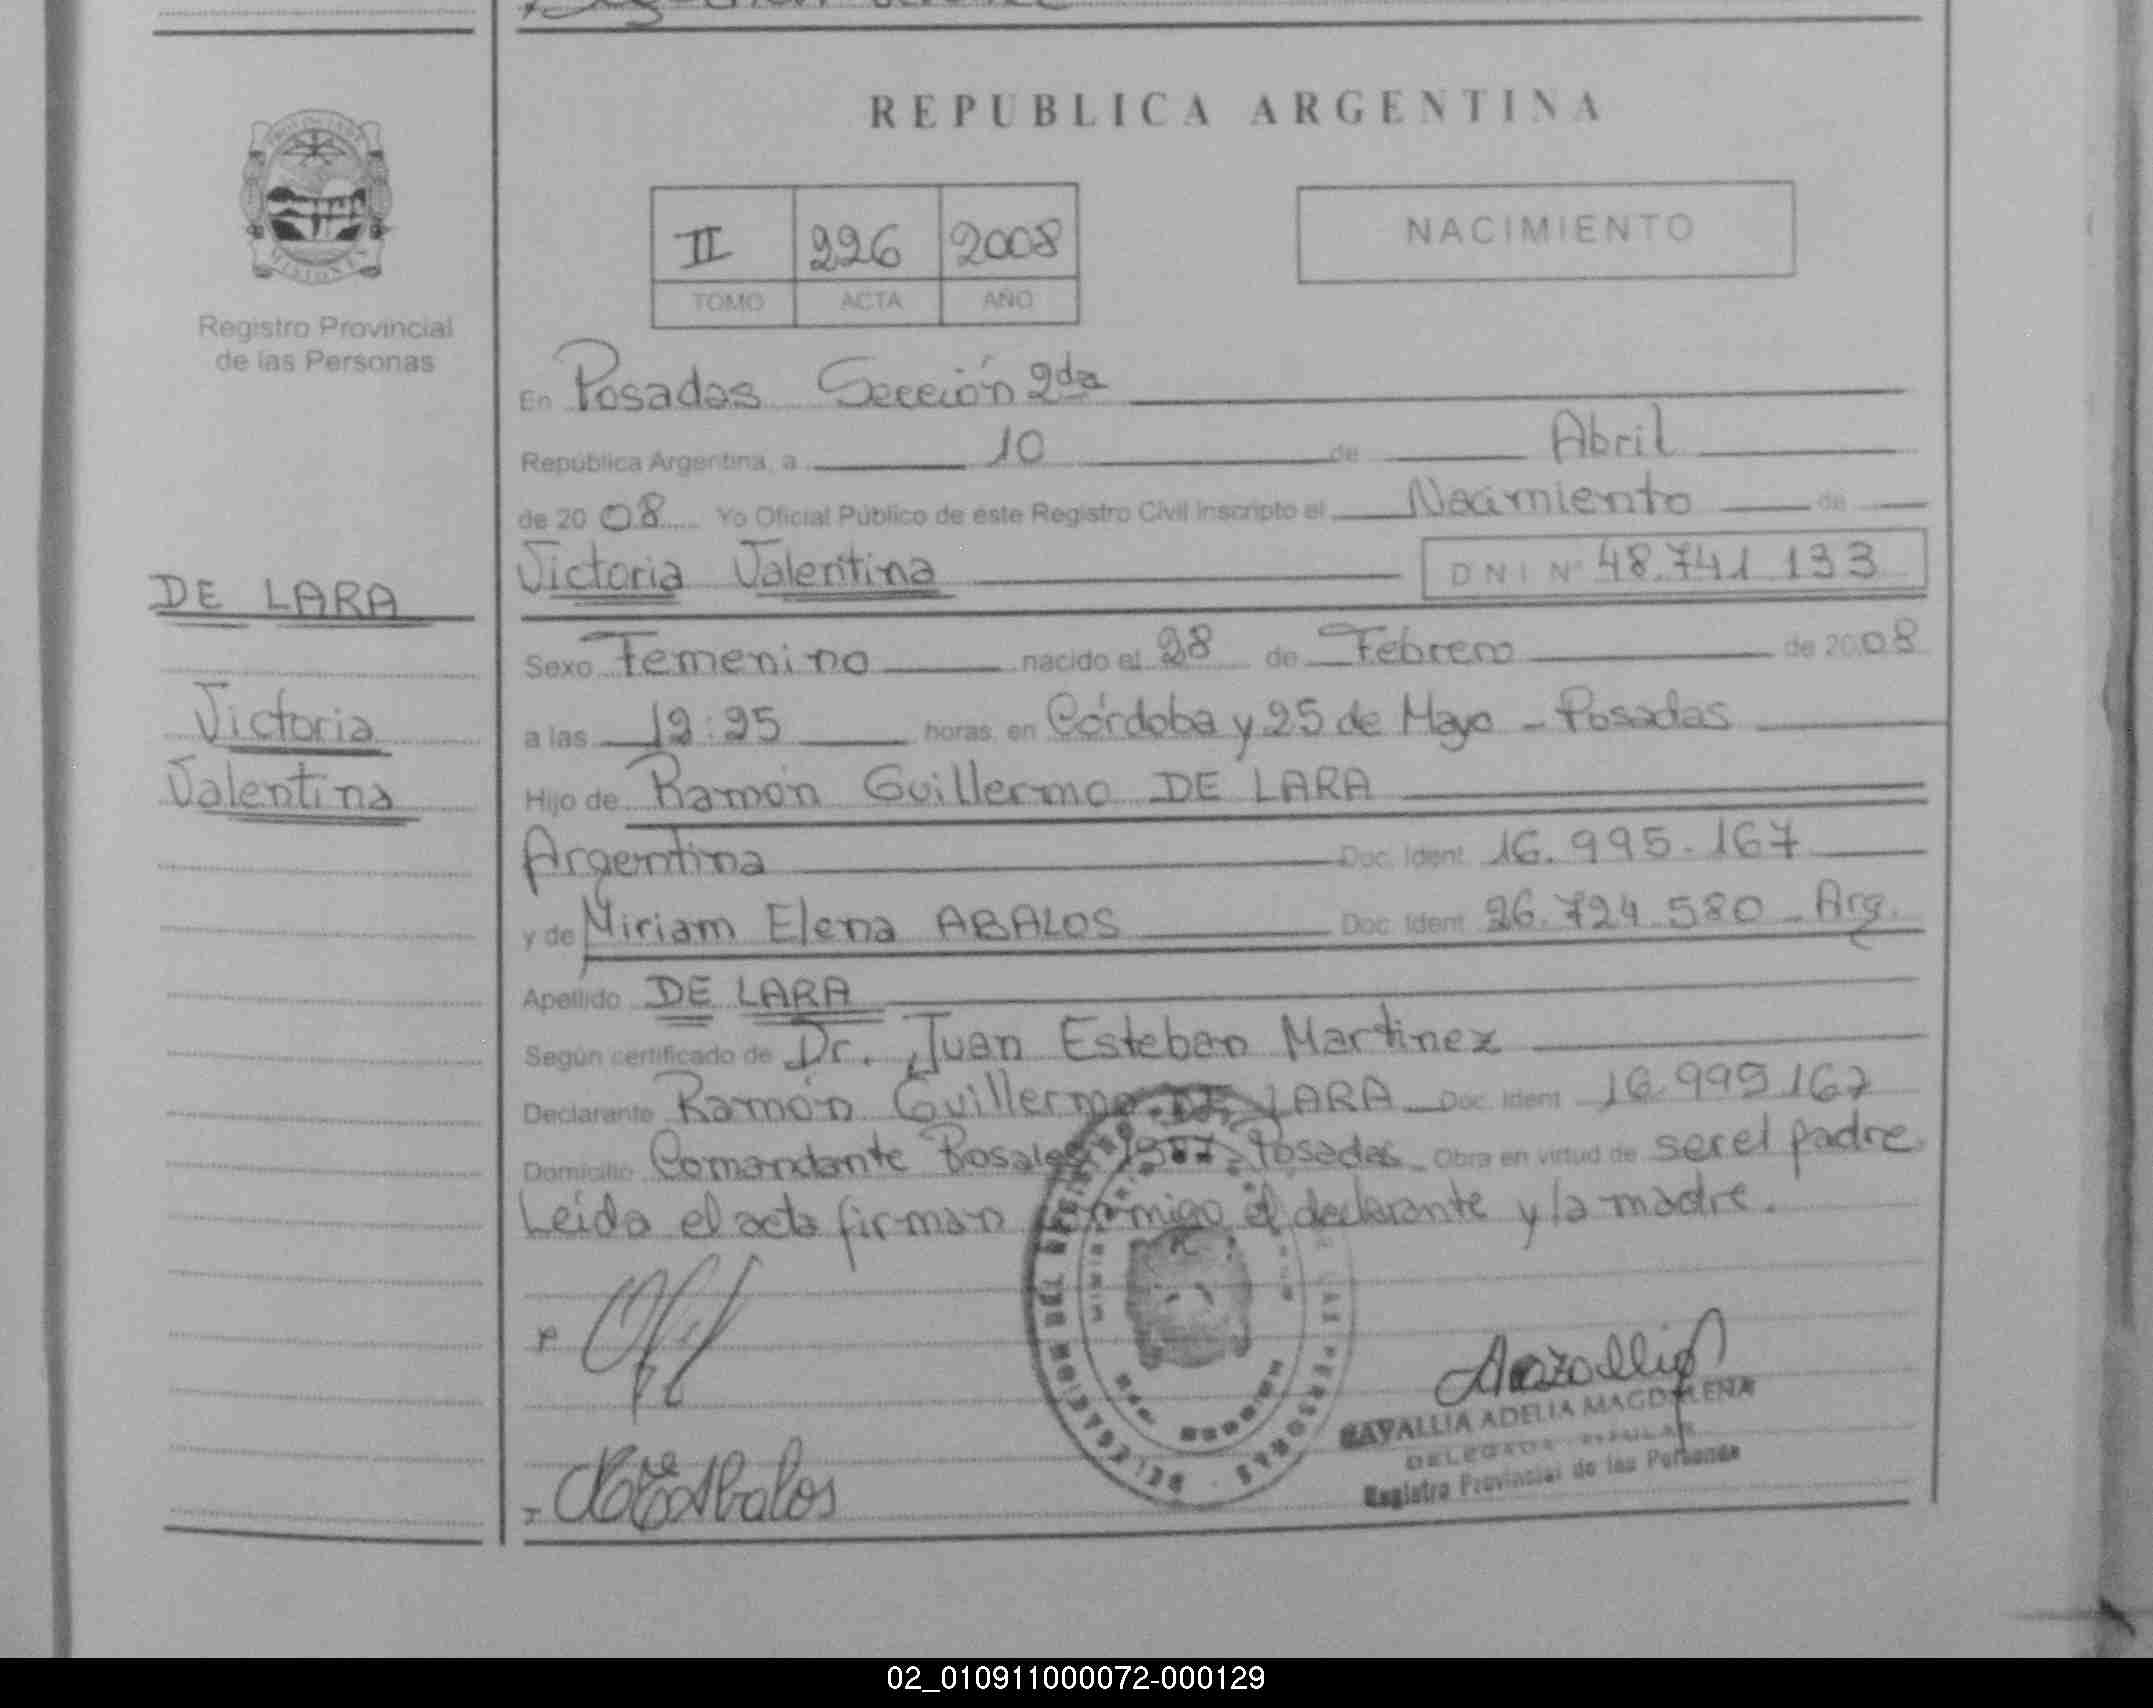 REPUBLICA ARGENTINA
PROVINCIA DE
MISIONES
Registro Provincial
de las Personas
II 226 2008
TOMO ACTA AÑO
NACIMIENTO
En Posadas Sección 2da
República Argentina, a 10 de Abril
de 2008 Yo Oficial Público de este Registro Civil inscripto el Nacimiento de
Victoria Valentina DNI Nº 48.741.133
DE LARA
Victoria
Valentina
Sexo Femenino nacido el 28 de Febrero de 2008
a las 12:25 horas, en Córdoba y 25 de Mayo - Posadas
Hijo de Ramón Guillermo DE LARA
Argentina Doc. Ident. 16.995.167
y de Miriam Elena ABALOS Doc. Ident. 26.724.580 - Arg.
Apellido DE LARA
Según certificado de Dr. Juan Esteban Martinez
Declarante Ramón Guillermo DE LARA Doc. Ident. 16.995.167
Domicilio Comandante Rosales Posadas Obra en virtud de ser el padre
Leída el acta firman conmigo el declarante y la madre.
Abalos
DELEGACION DEL REGISTRO DE LAS PERSONAS
ADELIA MAGDALENA
DELEGADA TITULAR
Registro Provincial de las Personas
02_010911000072-000129